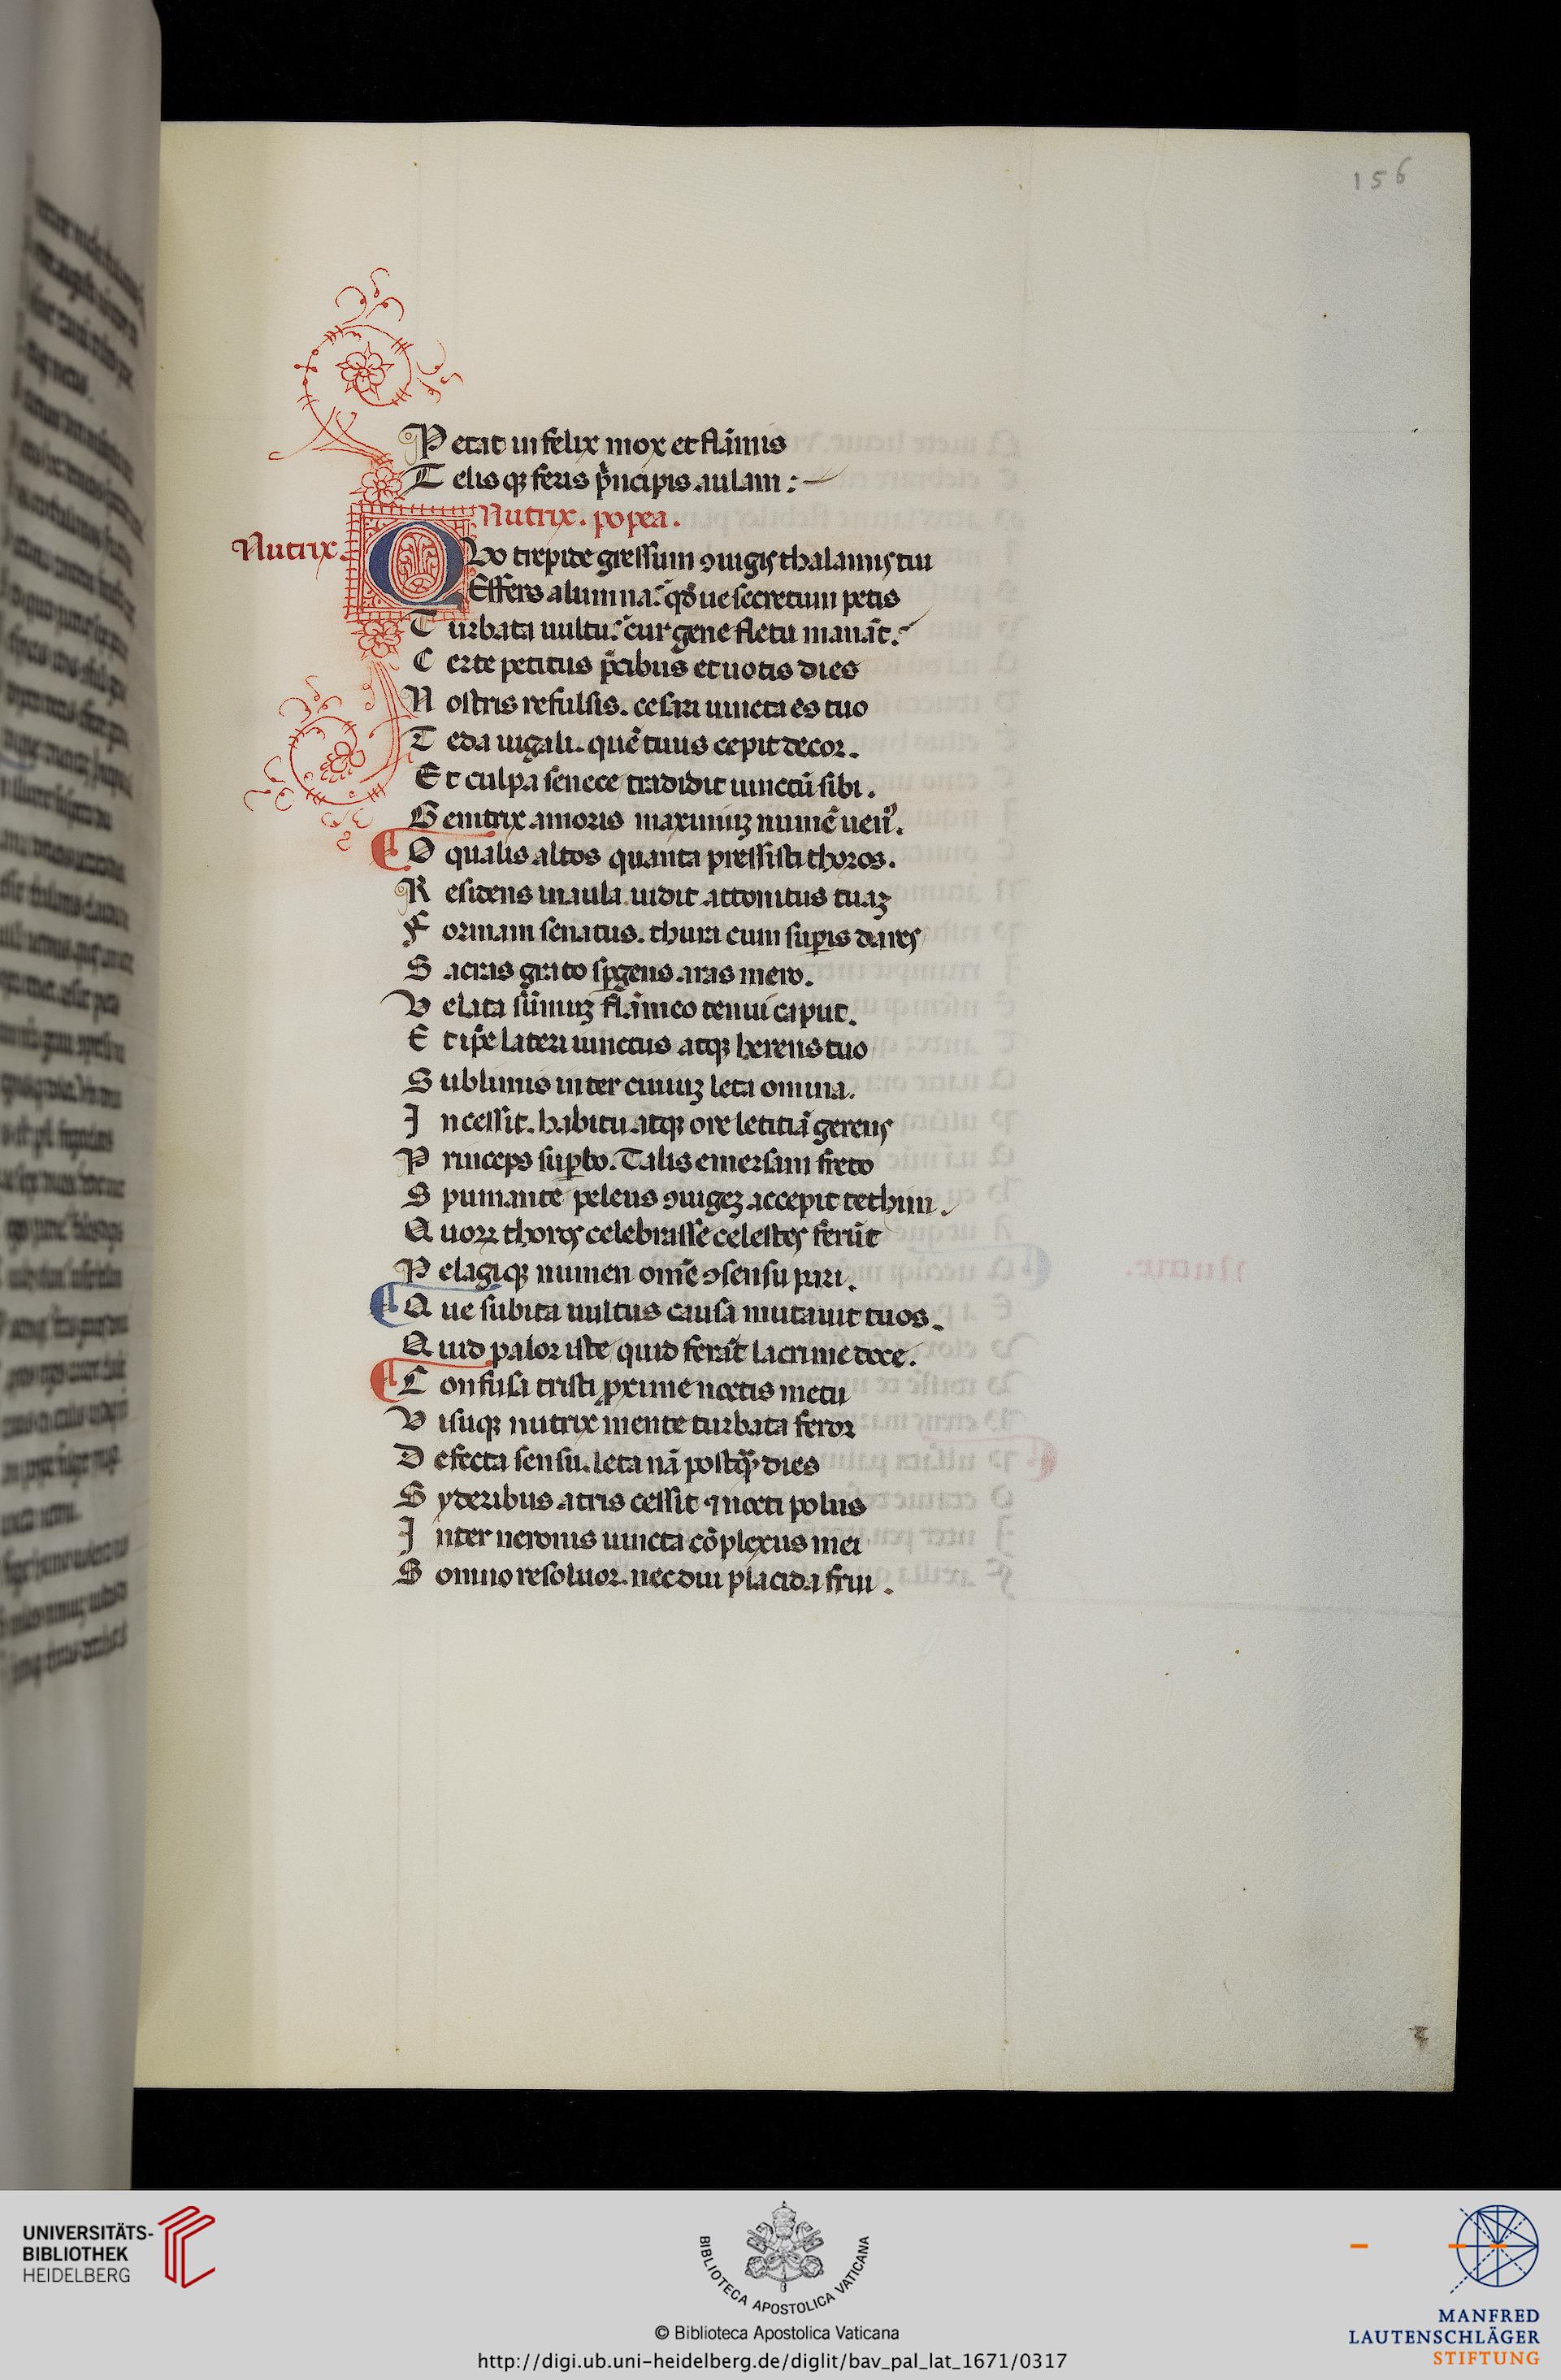 156
P etat infelix mox et flãmis
T elisqꝫ feris pͥncipis aulam :
Nutrix . popea .
Nutrix.
QVo trepide gressum ꝯiugis thalamis tui
Effers alumna. qͦd ue secretum petis
T urbata uultu. cur gene fletu manãt.
C erte petitus p̃cibus et uotis dies
N ostris refulsit. cesari iuncta es tuo
T eda iugali. quẽ tuus cepit decor.
Et culpa senece tradidit iunctũ sibi .
Genitrix amoris maximuꝫ numẽ ueñ.
O qualis altos quanta pressisti thoros.
R esidens in aula uidit attonitus tuaꝫ
F ormam senatus. thura cum suꝑis dares
S acras grato sꝑgens aras mero.
V elata sũmuꝫ flãmeo tenui caput.
E t ip̃e lateri iunctus atqꝫ herens tuo
S ublimis inter ciuiuꝫ leta omina.
I ncessit. habitu atqꝫ ore letitiã gerens
P rinceps suꝑbo. Talis emersam freto
S pumante peleus ꝯiugeꝫ accepit tethim.
Q uoꝝ thoros celebrasse celestes ferũt
P elagiqꝫ numen om̃e ꝯsensu pari.
Q ue subita uultus causa mutauit tuos.
Q uid palor iste quid ferãt lacrime doce.
C onfusa tristi ꝓxime noctis metu
V isuqꝫ nutrix mente turbata feror
D efecta sensu. leta nã postqᷓ dies
S yderibus atris cessit ⁊ nocti polus
I nter neronis uincta cõplexus mei
S omno resoluor. nec diu placida frui .
UNIVERSITÄTS-
BIBLIOTHEK
HEIDELBERG
BIBLIOTECA APOSTOLICA VATICANA
© Biblioteca Apostolica Vaticana
http://digi.ub.uni-heidelberg.de/diglit/bav_pal_lat_1671/0317
MANFRED
LAUTENSCHLÄGER
STIFTUNG